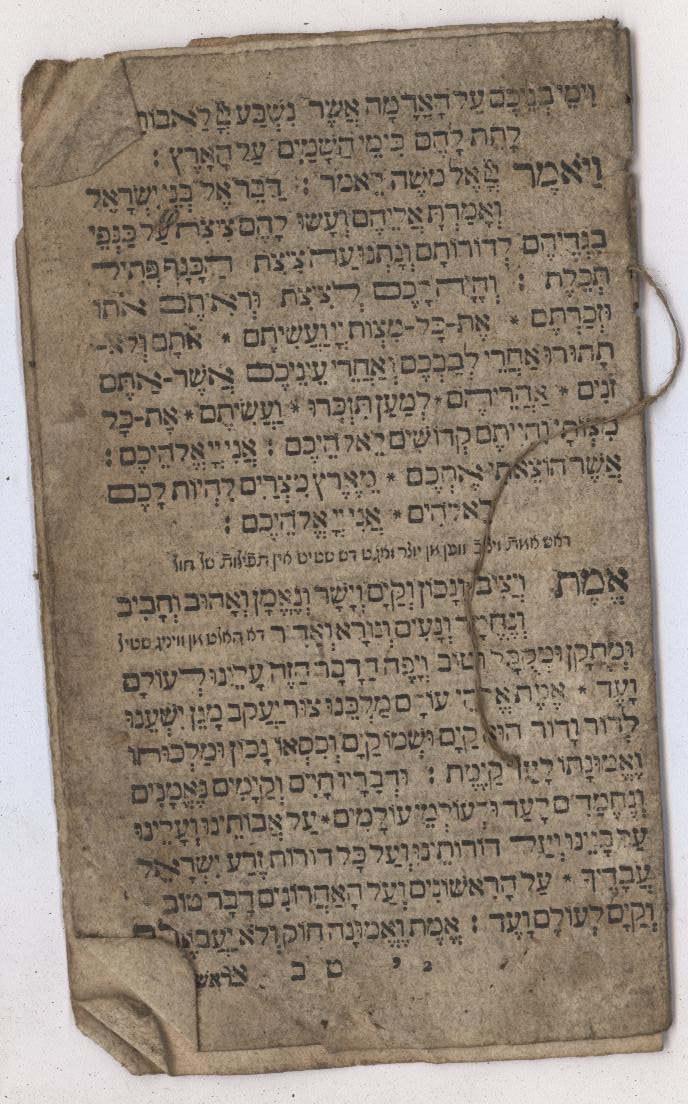 וִימֵי בְנֵיכֶם עַל הָאֲדָמָה אֲשֶׁר נִשְׁבַּע יְיָ לַאֲבוֹתֵ
לָתֵת לָהֶם כִּימֵי הַשָּׁמַיִם עַל הָאָרֶץ :
וַיֹּאמֶר יְיָ אֶל מֹשֶׁה לֵּאמֹר : דַּבֵּר אֶל בְּנֵי יִשְׂרָאֵל
וְאָמַרְתָּ אֲלֵיהֶם וְעָשׂוּ לָהֶם צִיצִת עַל כַּנְפֵי
בִגְדֵיהֶם לְדוֹרוֹתָם וְנָתְנוּ עַל צִיצִת הַכָּנָף פְּתִיל
תְּכֵלֶת : וְהָיָה לָכֶם לְצִיצִת וּרְאִיתֶם אֹתוֹ
וּזְכַרְתֶּם * אֶת-כָּל-מִצְוֹת יְיָ וַעֲשִׂיתֶם * אֹתָם וְלֹא-
תָתוּרוּ אַחֲרֵי לְבַבְכֶם וְאַחֲרֵי עֵינֵיכֶם אֲשֶׁר-אַתֶּם
זֹנִים * אַחֲרֵיהֶם * לְמַעַן תִּזְכְּרוּ * וַעֲשִׂיתֶם * אֶת-כָּל
מִצְוֹתָי וִהְיִיתֶם קְדוֹשִׁים לֵאלֹהֵיכֶם : אֲנִי יְיָ אֱלֹהֵיכֶם :
אֲשֶׁר הוֹצֵאתִי אֶתְכֶם * מֵאֶרֶץ מִצְרַיִם לִהְיוֹת לָכֶם
לֵאלֹהִים * אֲנִי יְיָ אֱלֹהֵיכֶם :
דאש אמת ויציב ווען מן יוצר זאגט דש שטיט אין תפילות
אֱמֶת וְיַצִּיב וְנָכוֹן וְקַיָּם וְיָשָׁר וְנֶאֱמָן וְאָהוּב וְחָבִיב
וְנֶחְמָד וְנָעִים וְנוֹרָא וְאַדִּיר דא האלט מן וויניג שטיל
וּמְתֻקָּן וּמְקֻבָּל וְטוֹב וְיָפֶה הַדָּבָר הַזֶּה עָלֵינוּ לְעוֹלָם
וָעֶד * אֱמֶת אֱלֹהֵי עוֹלָם מַלְכֵּנוּ צוּר יַעֲקֹב מָגֵן יִשְׁעֵנוּ
לְדוֹר וָדוֹר הוּא קַיָּם וּשְׁמוֹ קַיָּם וְכִסְאוֹ נָכוֹן וּמַלְכוּתוֹ
וֶאֱמוּנָתוֹ לָעַד קַיֶּמֶת : וּדְבָרָיו חָיִים וְקַיָּמִים נֶאֱמָנִים
וְנֶחֱמָדִים לָעַד וּלְעוֹלְמֵי עוֹלָמִים * עַל אֲבוֹתֵינוּ וְעָלֵינוּ
עַל בָּנֵינוּ וְעַל דּוֹרוֹתֵינוּ וְעַל כָּל דּוֹרוֹת זֶרַע יִשְׂרָאֵל
עֲבָדֶיךָ * עַל הָרִאשׁוֹנִים וְעַל הָאַחֲרוֹנִים דָּבָר טוֹב
וְקַיָּם לְעוֹלָם וָעֶד : אֱמֶת וֶאֱמוּנָה חוֹק וְלֹא יַעֲבֹר
י' ט ב